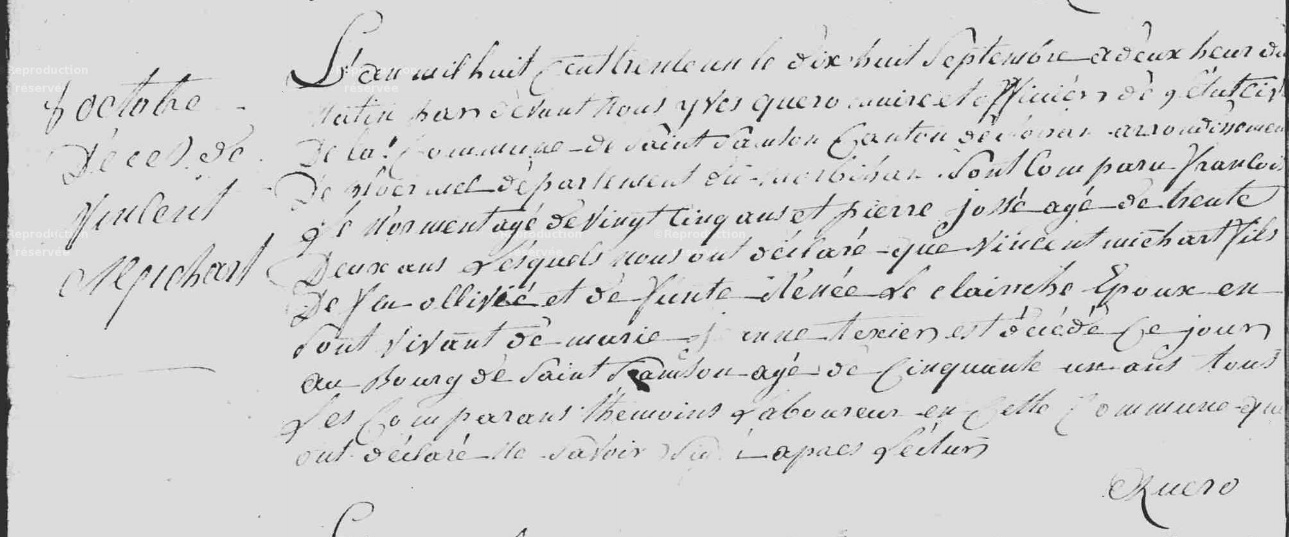 8 octobre
Décès de
Vincent
Michart
L'an mil huit Cent trente un le dix huit Septembre a deux heur du
Matin par devant Nous yves quero maire et officier de l'état civil
De la Commune de Saint Samson Canton de Rohan arrondissement
De ploermel département du morbihan Sont Comparu francois
Le Norment agé de vingt cinq ans et pierre jossé agé de trente
Deux ans Lesquels nous ont déclaré que vincent michart fils
De feu ollivié et de funte Rénée Le clainche Epoux en
Sont vivant de marie janne texier est décédé Ce jour
au Bourg de Saint Samson agé de Cinquante un ans tous
Les Comparans thémoins Laboureur en Cette Commune qui
ont déclaré ne Savoir apres Lecture
Quero